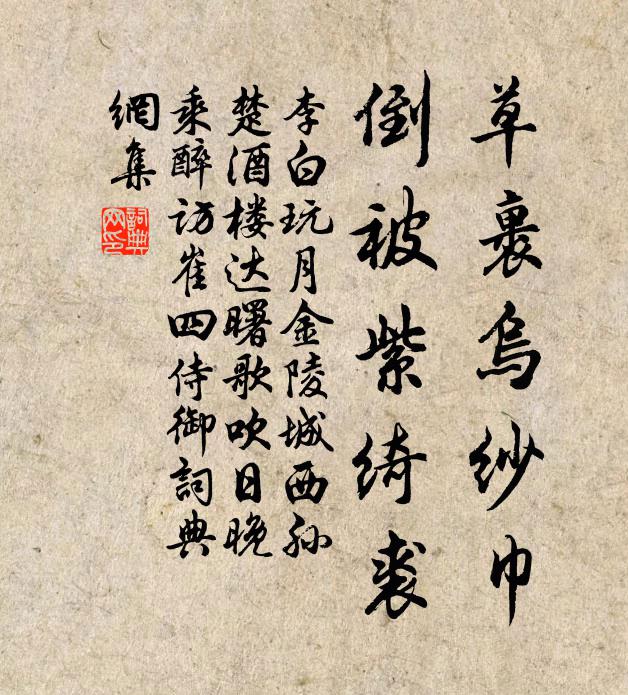 草裹烏紗巾
倒被紫绮裘
李白玩月金陵城西孙
楚酒楼达曙歌吹日晚
乘醉访崔四侍御詞典
網集
詞典
网印